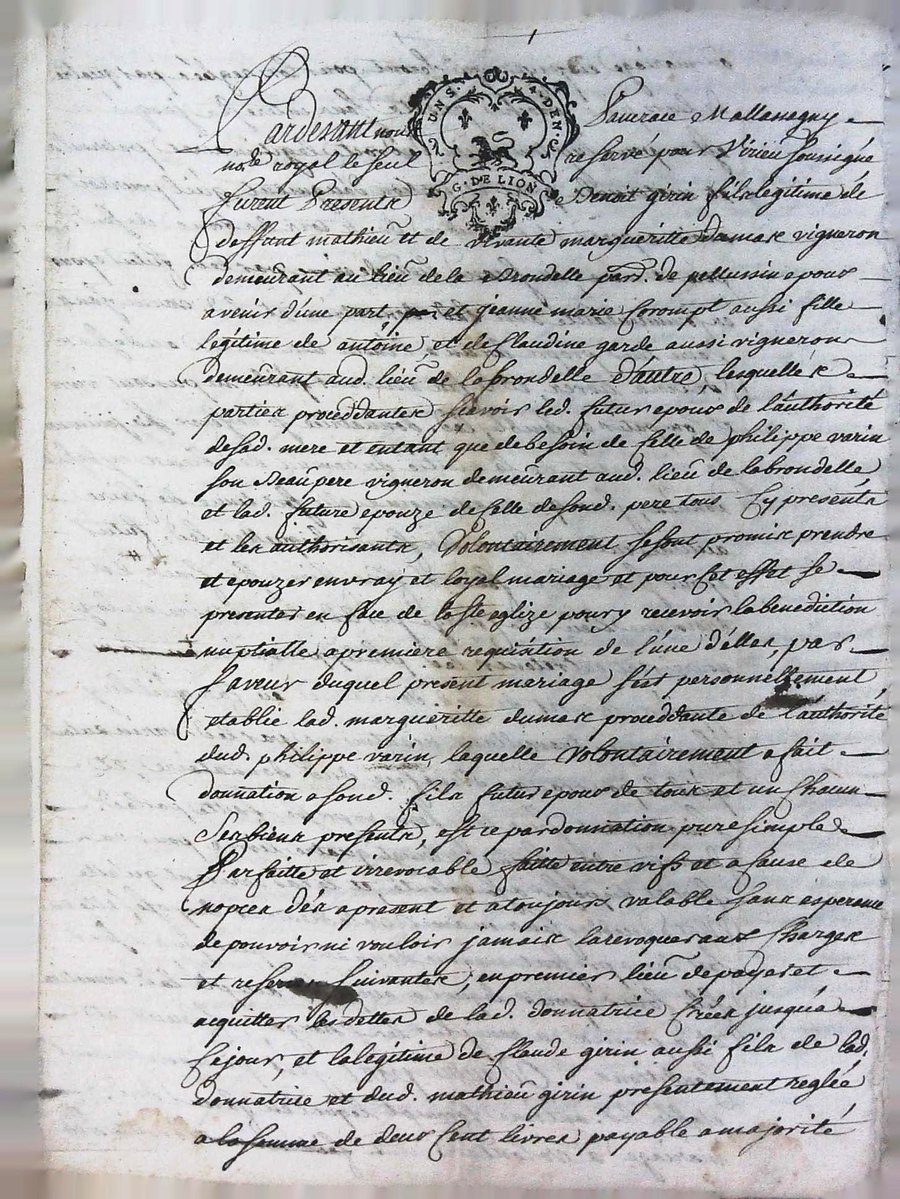 Pardevant nous Pancrace Mallassagny
UN S. 4. DEN.
G. DE LION
no.re royal le seul reservé pour Virieu soussigné
furent Presents Benoit girin fils legitime de
deffunt mathieu et de vivante margueritte dumas vigneron
demeurant au lieu de la Brondelle parr. de pellussin epoux
avenir d'une part, et jeanne marie Corompt aussi fille
legitime de antoine, et de Claudine garde aussi vigneron
demeurant aud. lieu de la brondelle d'autre, lesquelles
parties proceddantes scavoir led. futur epoux de l'authorité
de sad. mere et entant que de besoin de celle de philippe varin
son Beaupere vigneron demeurant aud. lieu de labrondelle
et lad. future epouze de celle de sond. pere tous Cy presents
et les authorisants, Volontairement se sont promis prendre
et epouzer en vray et loyal mariage et pour Cet effet se
presenter en face de la ste eglize pour y recevoir la benediction
nuptialle a premiere requisition de l'une d'elles, par
faveur duquel present mariage s'est personnellement
etablie lad. margueritte dumas proceddante de l'authorité
dud. philippe varin, laquelle Volontairement a fait
donnation a sond. fils futur epoux de tous et un Chacun
Ses biens presents, est ce par donnation pure simple
Parfaitte et irrevocable faitte entre vifs et a Cause de
nopces dés apresent et atoujours valable sans esperance
de pouvoir ni vouloir jamais la revoquer aux Charges
et reserves suivantes, en premier lieu de payer et
acquitter les dettes de lad. donnatrice Créés jusqu'a
Ce jour, et la legitime de Claude girin aussi fils de lad.
donnatrice et dud. mathieu girin presentement reglée
a la somme de deux Cent livres payable a majorité